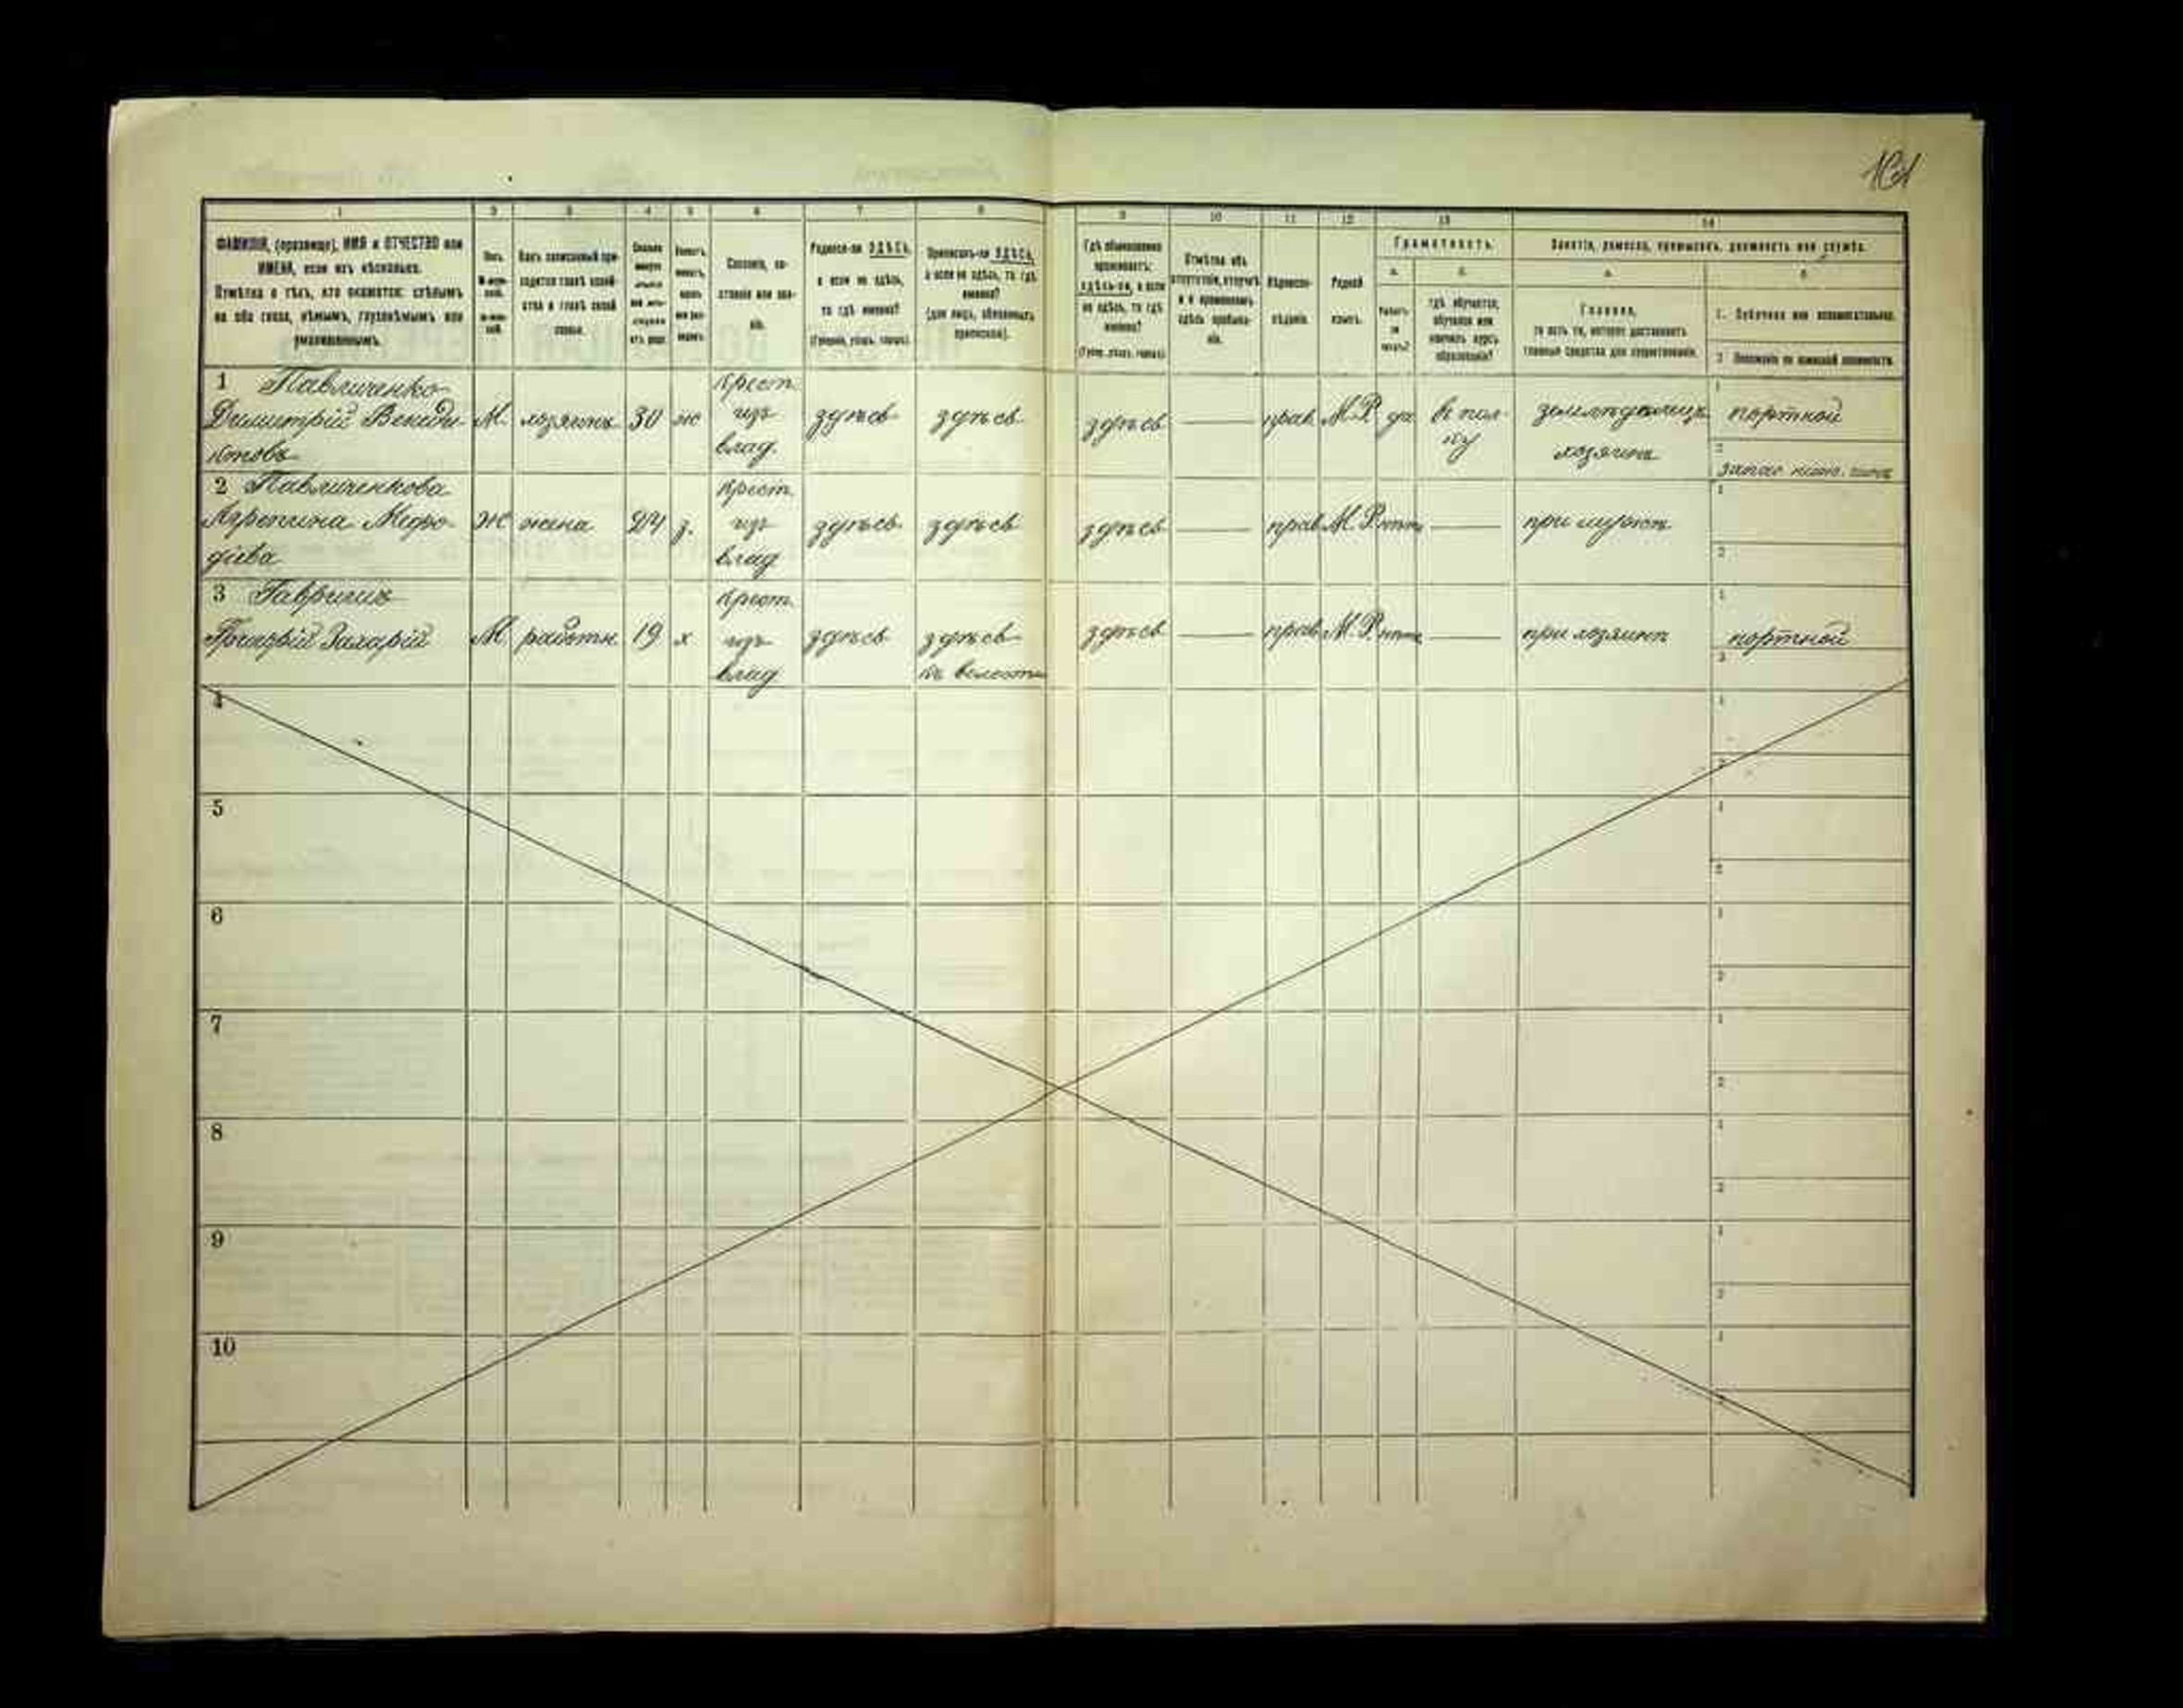 161
1 2 3 4 5 6 7 8 9 10 11 12 13 14
ФАМИЛІЯ, (прозвище), ИМЯ и ОТЧЕСТВО или
ИМЕНА, если ихъ нѣсколько.
Отмѣтка о тѣхъ, кто окажется: слѣпымъ
на оба глаза, нѣмымъ, глухонѣмымъ или
умалишеннымъ.
Полъ.
Какъ записанный при-
ходится главѣ хозяй-
ства и главѣ своей
семьи.
Сословіе, со-
стояніе или зва-
ніе.
Родился-ли ЗДѢСЬ,
а если не здѣсь,
то гдѣ именно?
(Губернія, уѣздъ, городъ).
Приписанъ-ли ЗДѢСЬ,
а если не здѣсь, то гдѣ
именно?
(для лицъ, обязанныхъ
припискою).
Гдѣ обыкновенно
проживаетъ:
здѣсь-ли, а если
не здѣсь, то гдѣ
именно?
(Губер., уѣздъ, городъ).
Отмѣтка объ
отсутствіи, отлучкѣ
и о временномъ
здѣсь пребыва-
ніи.
Вѣроиспо-
вѣданіе.
Родной
языкъ.
Грамотность.
а. б.
Умѣетъ
ли
читать?
гдѣ обучается,
обучался или
кончилъ курсъ
образованія?
Занятіе, ремесло, промыселъ, должность или служба.
а. б.
Главное,
то есть то, которое доставляетъ
главныя средства для существованія.
1. Побочное или вспомогательное.
2. Положеніе по воинской повинности.
1 Павличенко
Димитрій Венеди-
ктовъ
М. хозяинъ 30 ж
крест.
изъ
влад.
здѣсь здѣсь здѣсь — прав. М.Р. да
въ пол-
ку
земледѣлецъ
хозяинъ
1 портной
2
2 Павличенкова
Агрепина Меѳо-
діева
Ж жена 24 з.
крест.
изъ
влад.
здѣсь здѣсь здѣсь — прав. М.Р. нѣтъ —
при мужѣ
1
2
3 Гавриликъ
Захарій
М работн. 19 х
крест.
изъ
влад.
здѣсь здѣсь
въ волости
здѣсь — прав. М.Р. нѣтъ —
при хозяинѣ
1
портной
2
4
1
2
5
1
2
6
1
2
7
1
2
8
1
2
9
1
2
10
1
2